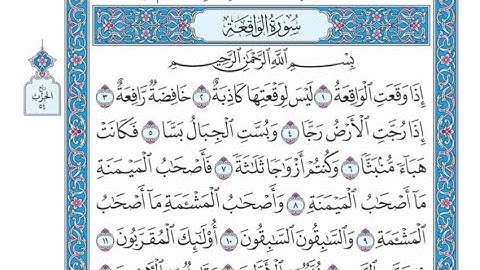 سُورَةُ الوَاقِعَةِ
بِسْمِ اللَّهِ الرَّحْمَٰنِ الرَّحِيمِ
إِذَا وَقَعَتِ الْوَاقِعَةُ ١ لَيْسَ لِوَقْعَتِهَا كَاذِبَةٌ ٢ خَافِضَةٌ رَّافِعَةٌ ٣
رُبع الحِزْب ٥٤
إِذَا رُجَّتِ الْأَرْضُ رَجًّا ٤ وَبُسَّتِ الْجِبَالُ بَسًّا ٥ فَكَانَتْ
هَبَاءً مُّنبَثًّا ٦ وَكُنتُمْ أَزْوَاجًا ثَلَاثَةً ٧ فَأَصْحَابُ الْمَيْمَنَةِ
مَا أَصْحَابُ الْمَيْمَنَةِ ٨ وَأَصْحَابُ الْمَشْـَٔمَةِ مَا أَصْحَابُ
الْمَشْـَٔمَةِ ٩ وَالسَّابِقُونَ السَّابِقُونَ ١٠ أُولَٰئِكَ الْمُقَرَّبُونَ ١١